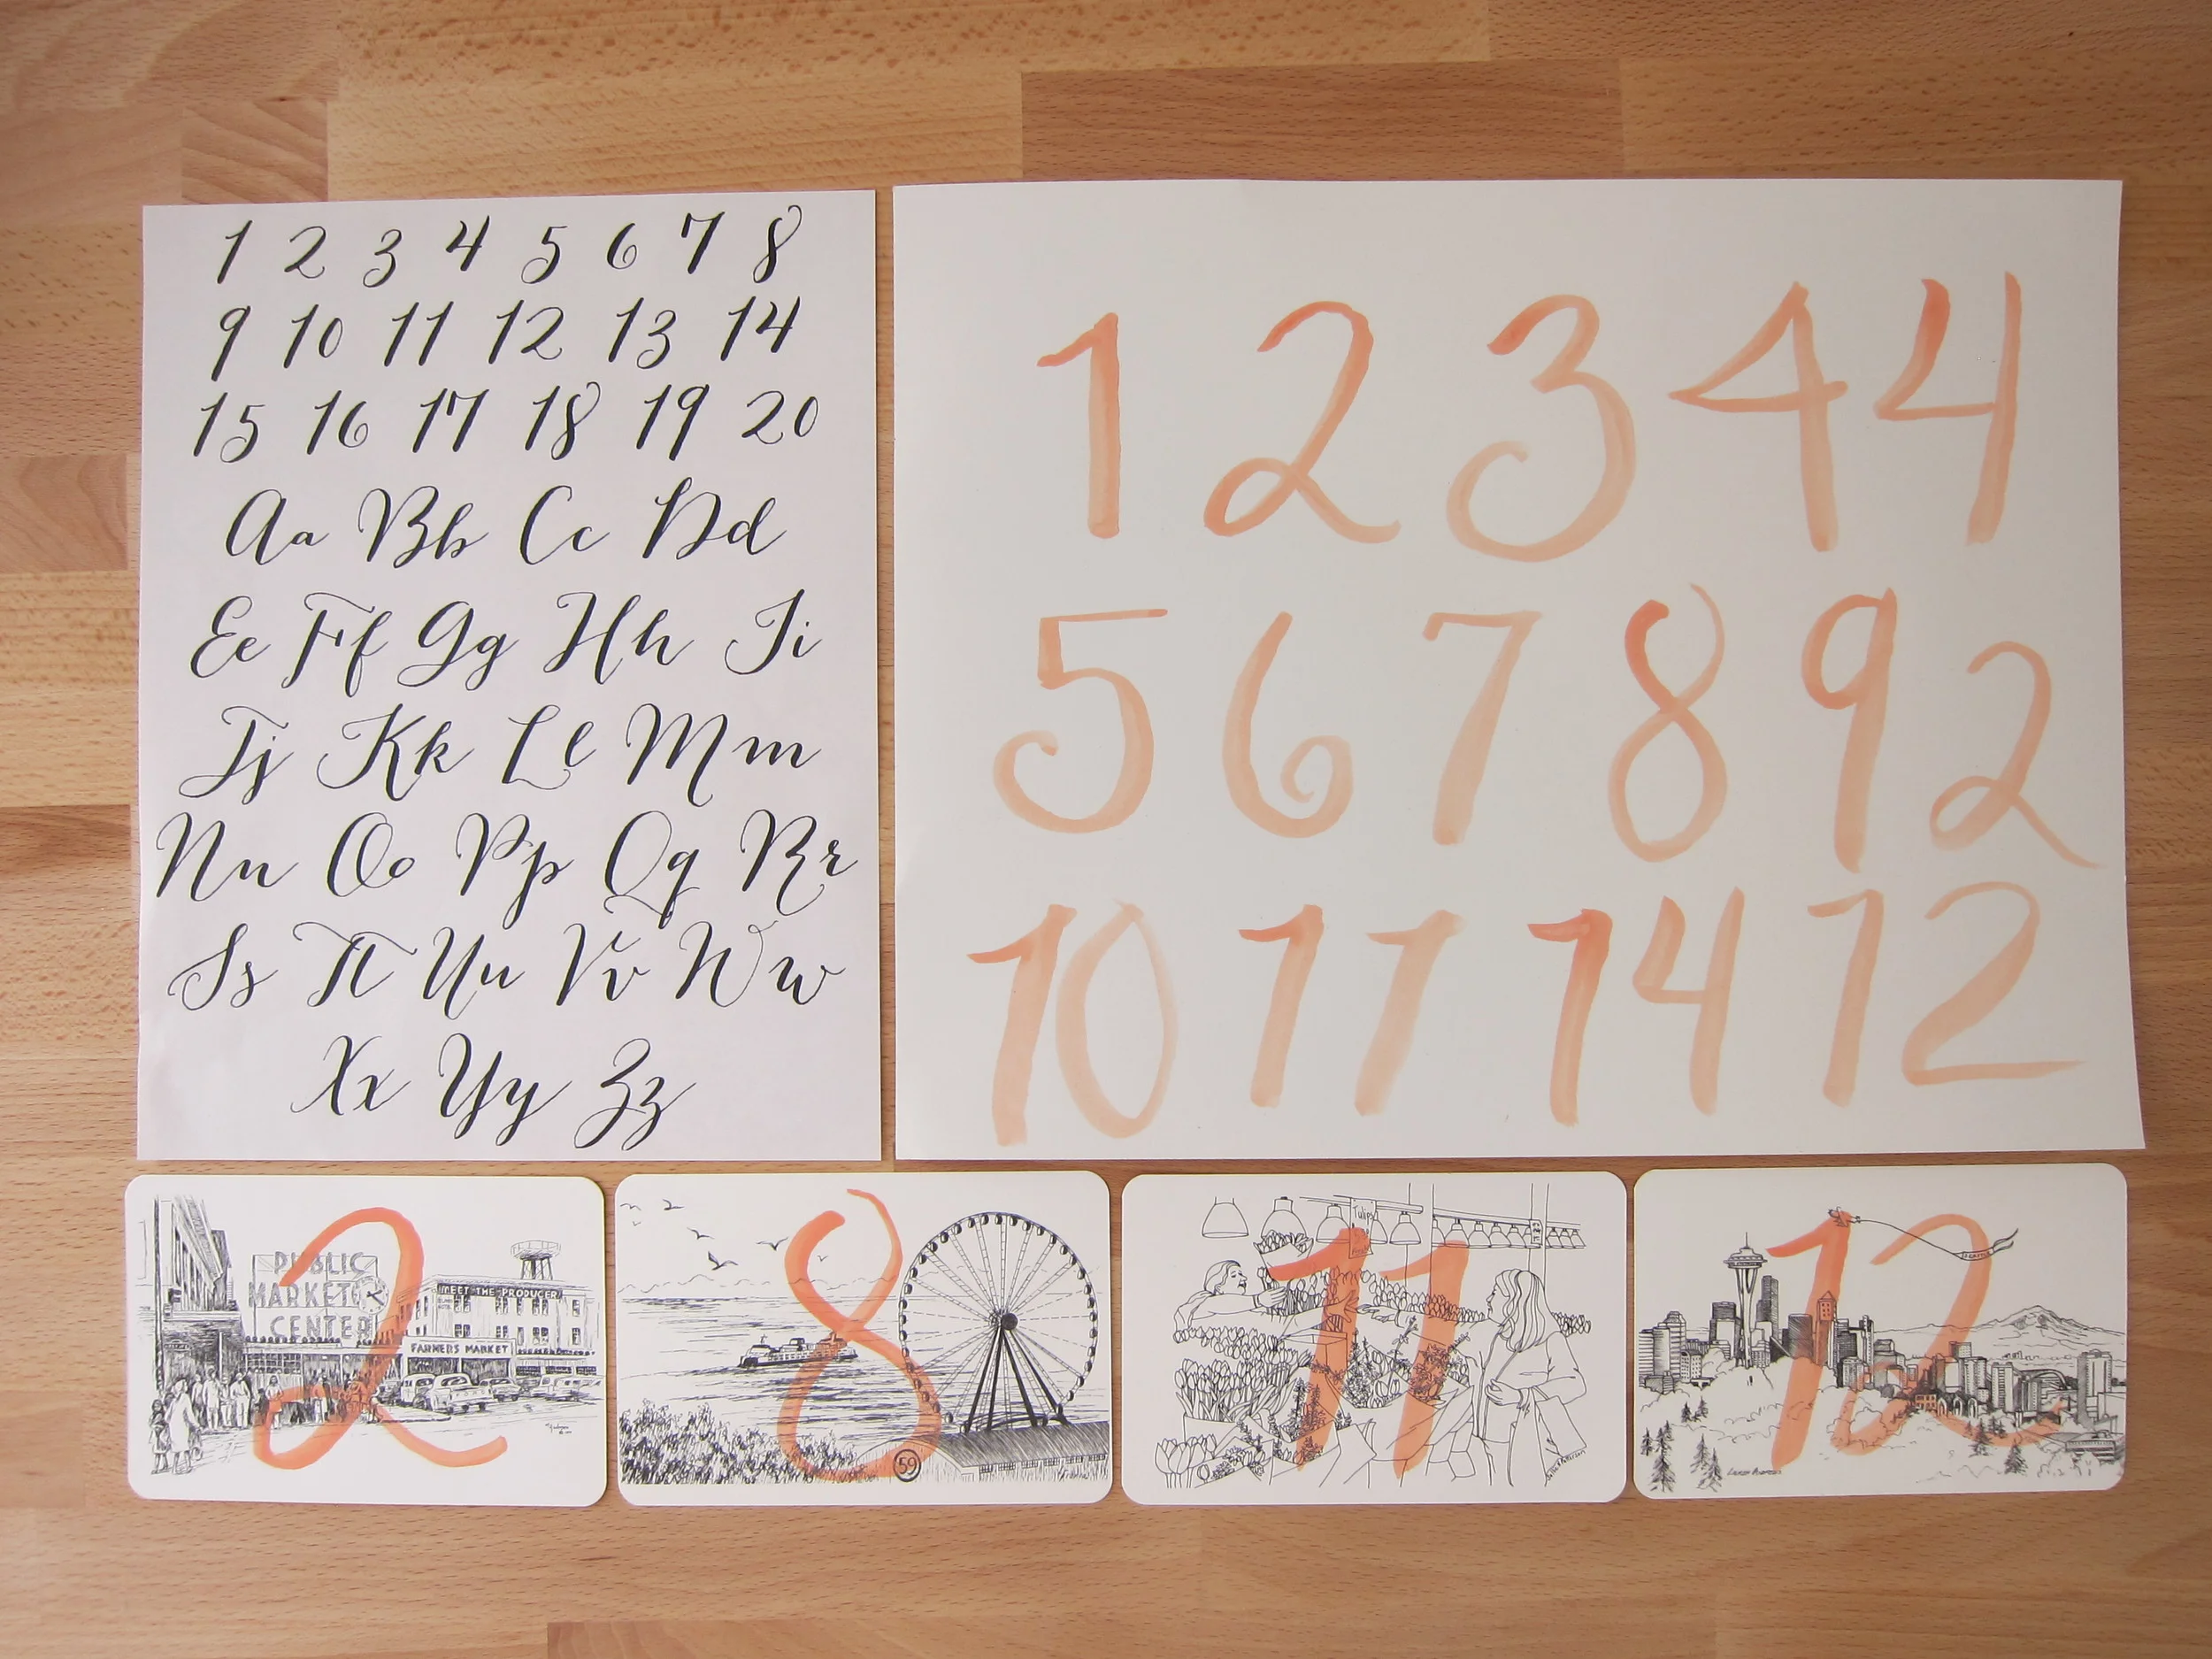 1 2 3 4 5 6 7 8
9 10 11 12 13 14
15 16 17 18 19 20
Aa Bb Cc Dd
Ee Ff Gg Hh Ii
Jj Kk Ll Mm
Nn Oo Pp Qq Rr
Ss Tt Uu Vv Ww
Xx Yy Zz
1 2 3 4 4
5 6 7 8 9 2
10 11 14 12
2
PUBLIC
MARKET
CENTER
MEET THE PRODUCER
FARMERS MARKET
8
59
11
Tulips
12